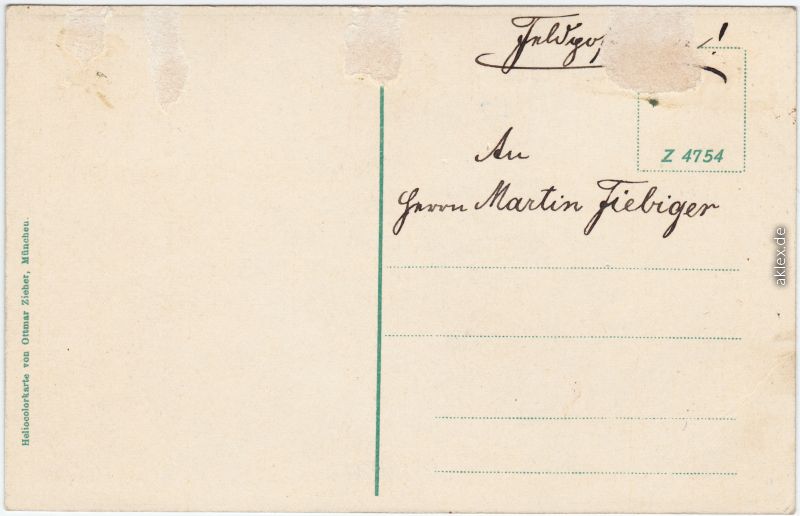 Feldpo
!
Z 4754
An
Herrn Martin Fiebiger
Heliocolorkarte von Ottmar Zieher, München.
aklex.de